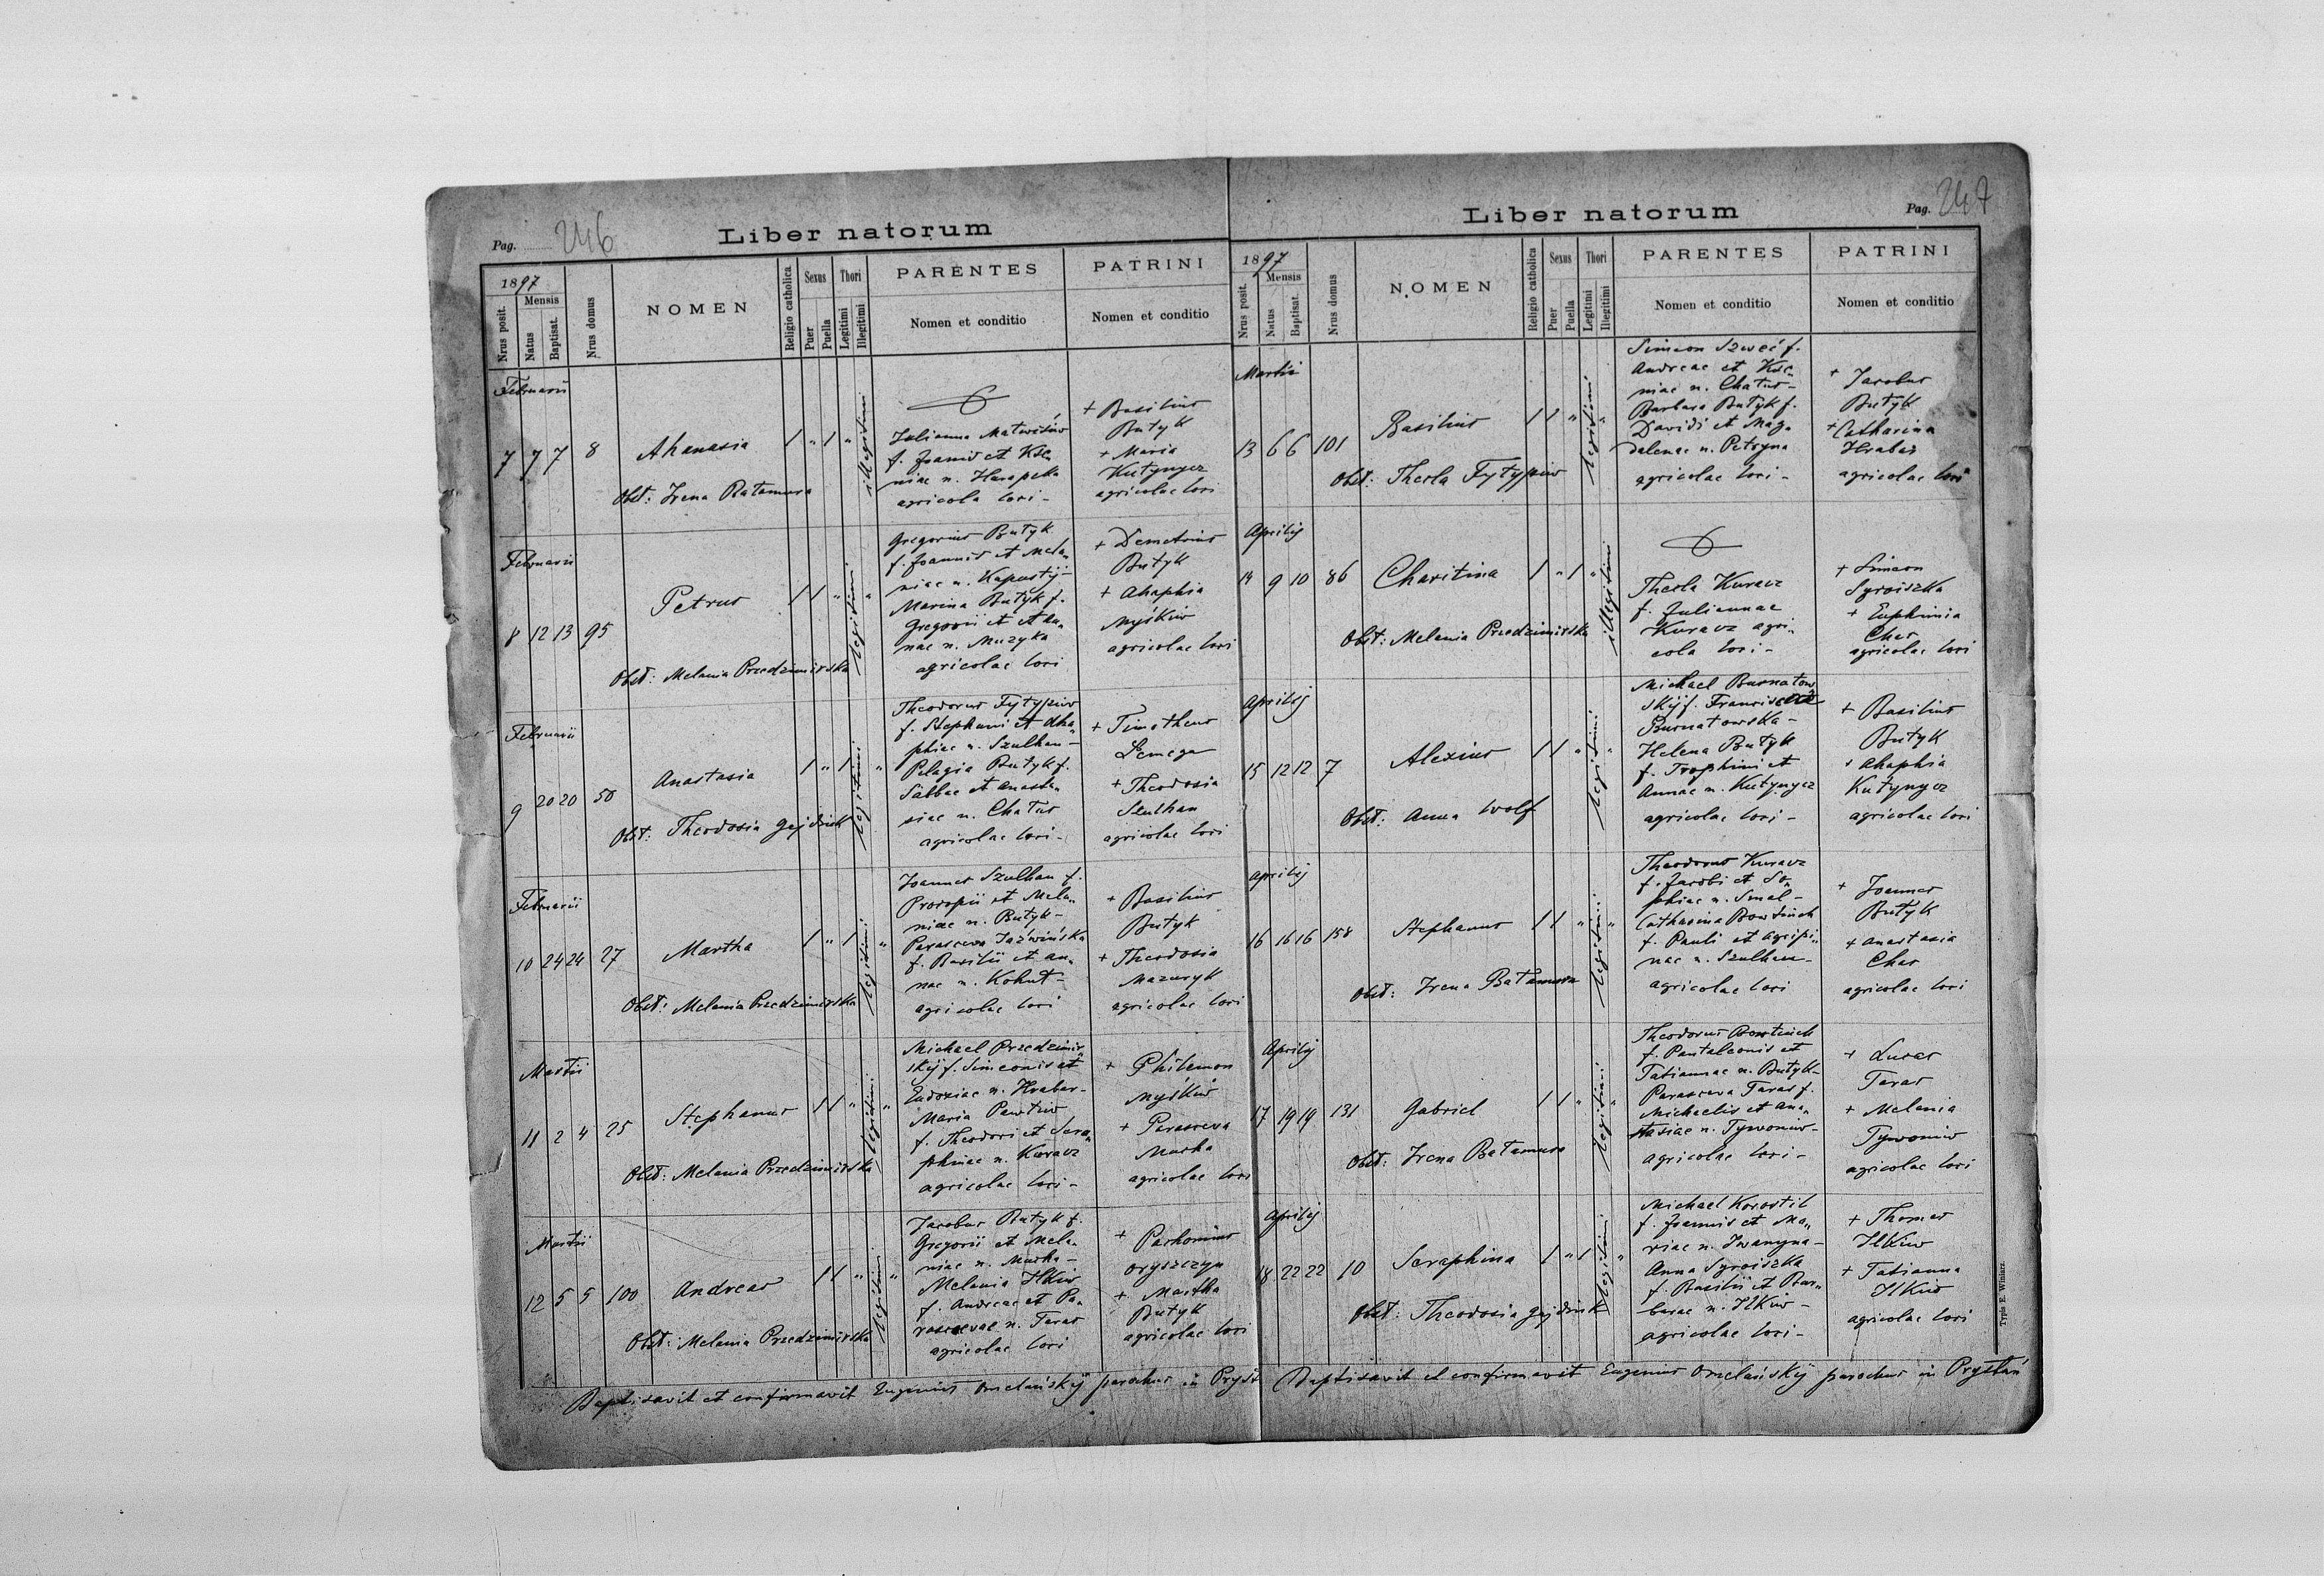 Pag. 246
Liber natorum
1897
Mensis
Nrus posit.
Natus
Baptisat.
Nrus domus
NOMEN
Religio catholica
Sexus
Puer
Puella
Thori
Legitimi
Illegitimi
PARENTES
Nomen et conditio
PATRINI
Nomen et conditio
Februarii
7 7 7 8
Ahanasia
1 " 1 "
illegitimi
Obst: Irena Batamura
Julianna Matwisiw
f. Joannis et Kse„
niae n. Harapeka
agricola loci -
+ Basilius
Butyk
+ Maria
Kutynycz
agricolae loci
Februarii
8 12 13 95
Petrus
1 1 " "
legitimi
Obst: Melania Przedzimirska
Gregorius Butyk
f. Joannis et Mela„
niae n. Kapustij -
Marina Butyk f.
Gregorii et
nae n. Muzyka
agricolae loci
+ Demetrius
Butyk
+ Ahaphia
Myśkiw
agricolae loci
Februarii
9 20 20 50
Anastasia
1 " 1 "
legitimi
Obst: Theodosia Gejdziuk
Theodorus Fytypiw
f. Stephani et Aha„
phiae n. Szulhan -
Pelagia Butyk f.
Sabbae et Anasta„
siae n. Chatus
agricolae loci -
+ Timotheus
Lemega
+ Theodosia
Szulhan
agricolae loci
Februarii
10 24 24 27
Martha
1 " 1 "
legitimi
Obst: Melania Przedzimirska
Joannes Szulhan f.
Procopii et Mela„
niae n. Butyk -
Parasceva Jaźwińska
f. Basilii et An„
nae n. Kohut -
agricolae loci
+ Basilius
Butyk
+ Theodosia
Mazuryk
agricolae loci
Martii
11 2 4 25
Stephanus
1 1 " "
legitimi
Obst: Melania Przedzimirska
Michael Przedzimir„
skij f. Simeonis et
Eudoxiae n. Hrabar -
Maria Pawtiw
f. Theodori et Sera„
phinae n. Kuracz
agricolae loci -
+ Philemon
Myśkiw
+ Parasceva
Murha
agricolae loci
Martii
12 5 5 100
Andreas
1 1 " "
legitimi
Obst: Melania Przedzimirska
Jacobus Butyk f.
Gregorii et Mela„
niae n. Murha -
Melania Ilkiw
f. Andreae et Pa„
rascevae n. Taras
agricolae loci
+ Pachomius
Oryszczyn
+ Martha
Butyk
agricolae loci
Baptisavit et confirmavit Eugenius Omelańskij parochus in Pryst
Pag. 247
Liber natorum
1897
Mensis
Nrus posit.
Natus
Baptisat.
Nrus domus
NOMEN
Religio catholica
Sexus
Puer
Puella
Thori
Legitimi
Illegitimi
PARENTES
Nomen et conditio
PATRINI
Nomen et conditio
Martii
13 6 6 101
Basilius
1 1 " "
legitimi
Obst: Thecla Fytypiw
Simeon Szweć f.
Andreae et Kse„
niae n. Chatus -
Barbara Butyk f.
Davidi et Mag„
dalenae n. Petryna
agricolae loci -
+ Jacobus
Butyk
+ Catharina
Hrabar
agricolae loci
Aprilij
14 9 10 86
Charitina
1 " 1 "
illegitimi
Obst: Melania Przedzimirska
Thecla Kuracz
f. Juliannae
Kuracz agri„
cola loci -
+ Simeon
Syroiszka
+ Euphimia
Char
agricolae loci
Aprilij
15 12 12 7
Alexius
1 1 " "
legitimi
Obst: Anna Wolf
Michael Burnatow
skij f.
Burnatowska -
Helena Butyk
f. Trophimi et
Annae n. Kutynycz
agricolae loci -
+ Basilius
Butyk
+ Ahaphia
Kutynycz
agricolae loci
Aprilij
16 16 16 158
Stephanus
1 1 " "
legitimi
Obst: Irena Batamura
Theodorus Kuracz
f. Jacobi et So„
phiae n. Smal -
Catharina Bowtiuch
f. Pauli et Agripi„
nae n. Szulhan -
agricolae loci
+ Joannes
Butyk
+ Anastasia
Char
agricolae loci
Aprilij
17 19 19 131
Gabriel
1 1 " "
legitimi
Obst: Irena Batamura
Theodorus Bowtiuch
f. Pantaleonis et
Tatiannae n. Butyk -
Parasceva Taras f.
Michaelis et Ana„
stasiae n. Tywoniw -
agricolae loci -
+ Lucas
Taras
+ Melania
Tywoniw
agricolae loci
Aprilij
18 22 22 10
Seraphina
1 " 1 "
legitimi
Obst: Theodosia Gejdziuk
Michael Korostil
f. Joannis et Ma„
riae n. Iwanyna -
Anna Syroiszka
f. Basilii et Bar„
barae n. Ilkiw -
agricolae loci -
+ Thomas
Ilkiw
+ Tatianna
Ilkiw
agricolae loci
Baptisavit et confirmavit Eugenius Omelańskij parochus in Prystań
Typis E. Winiarz.